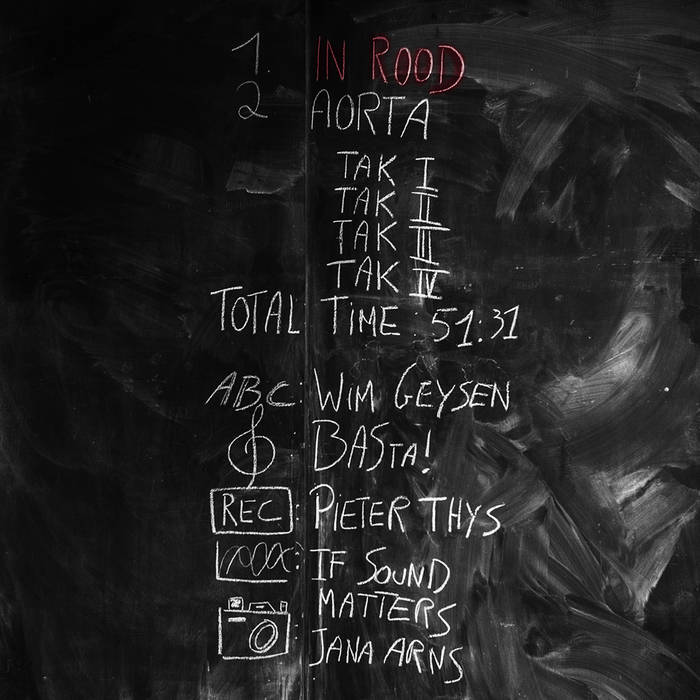 1. IN ROOD
2 AORTA
TAK I
TAK II
TAK III
TAK IV
TOTAL TIME : 51:31
ABC : WIM GEYSEN
: BASTA!
REC : PIETER THYS
: IF SOUND
MATTERS
: JANA ARNS